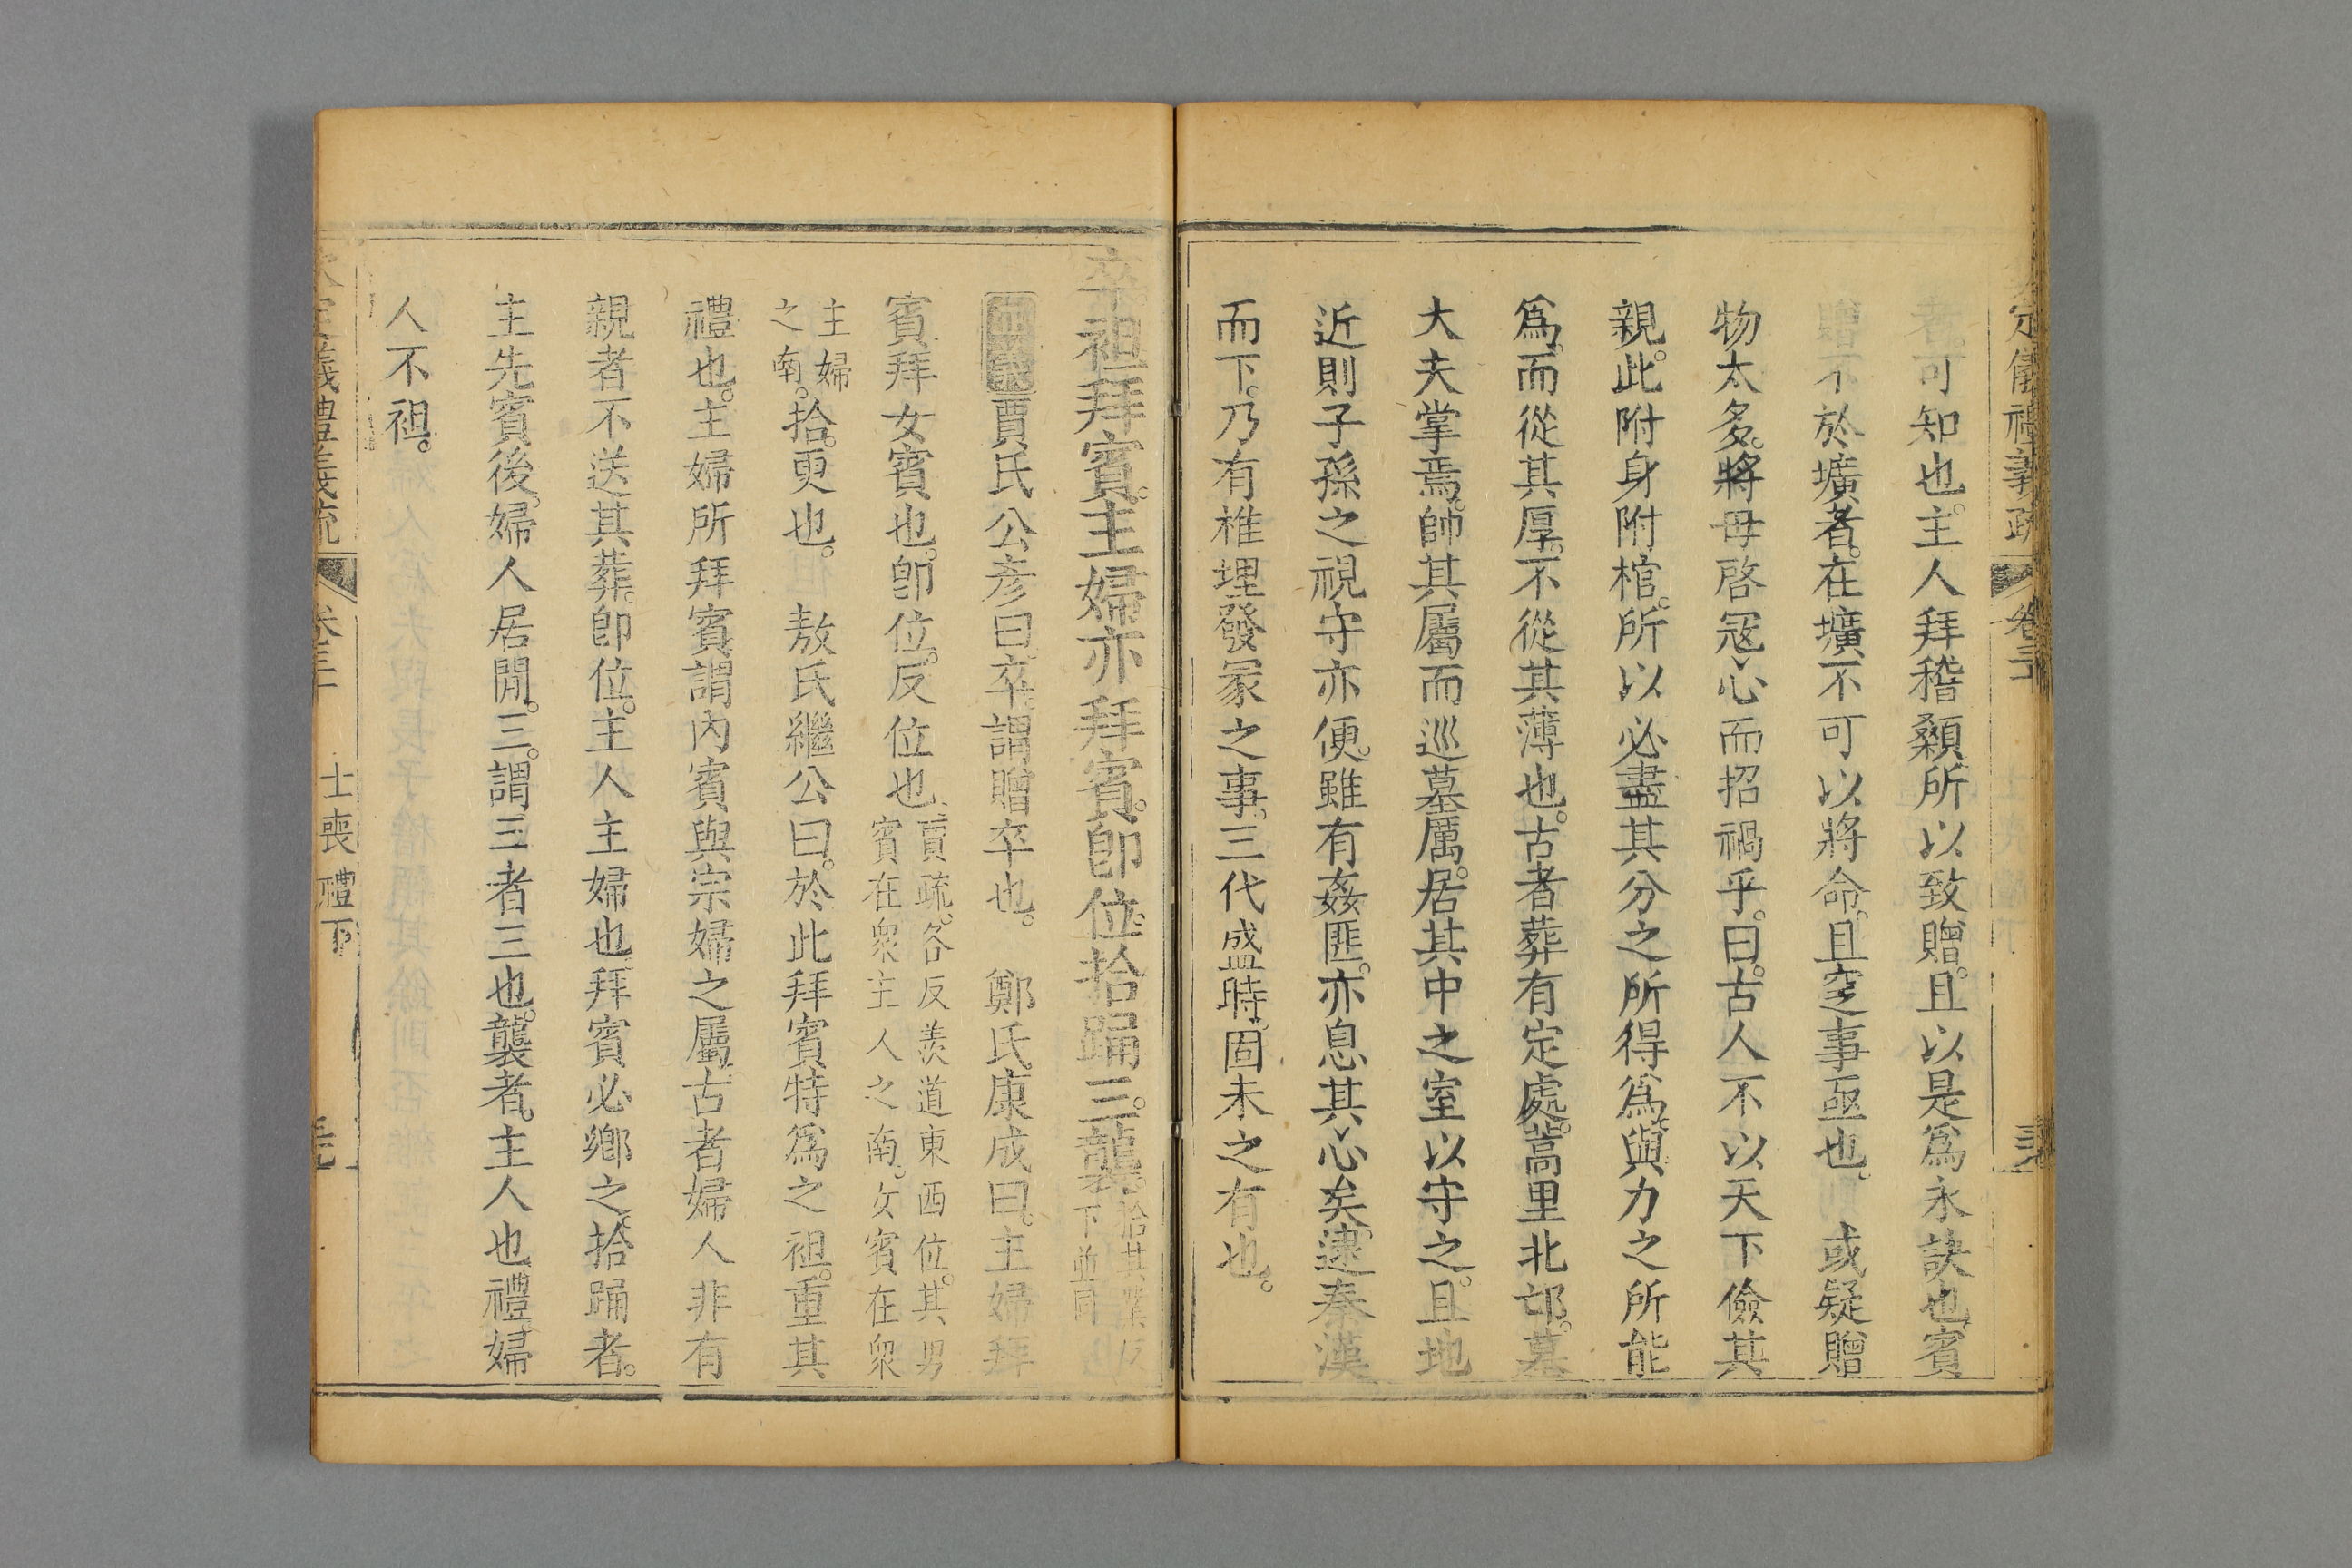 定儀禮義疏 卷三
者可知也。主人拜稽顙所以致贈。且以是爲永訣也。賓
贈不於壙者。在壙不可以將命。且窆事亟也。 或疑贈
物太多。將毋啓寇心而招禍乎。曰。古人不以天下儉其
親。此附身附棺。所以必盡其分之所得爲。與力之所能
爲。而從其厚。不從其薄也。古者葬有定處。蒿里北邙。墓
大夫掌焉。帥其屬而巡墓厲。居其中之室以守之。且地
近則子孫之視守亦便。雖有姦匪。亦息其心矣。逮秦漢
而下。乃有椎埋發冢之事。三代盛時。固未之有也。
卒袒拜賓。主婦亦拜賓。卽位。拾踊三。襲。拾其業反
下並同
正義賈氏公彥曰。卒。謂贈卒也。 鄭氏康成曰。主婦拜
賓。拜女賓也。卽位。反位也。賈疏。各反羨道東西位。其男
賓在衆主人之南。女賓在衆
主婦
之南。拾。更也。 敖氏繼公曰。於此拜賓。特爲之袒。重其
禮也。主婦所拜賓。謂內賓與宗婦之屬。古者婦人非有
親者不送其葬。卽位。主人主婦也。拜賓必鄉之。拾踊者。
主先賓後。婦人居閒。三。謂三者三也。襲者。主人也。禮。婦
人不袒。
定儀禮義疏 卷三十 士喪禮下